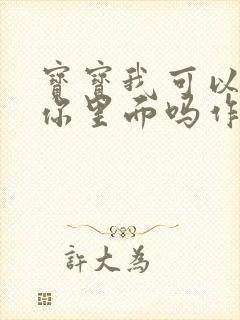 寶寶我可以
你里面吗作
許大為